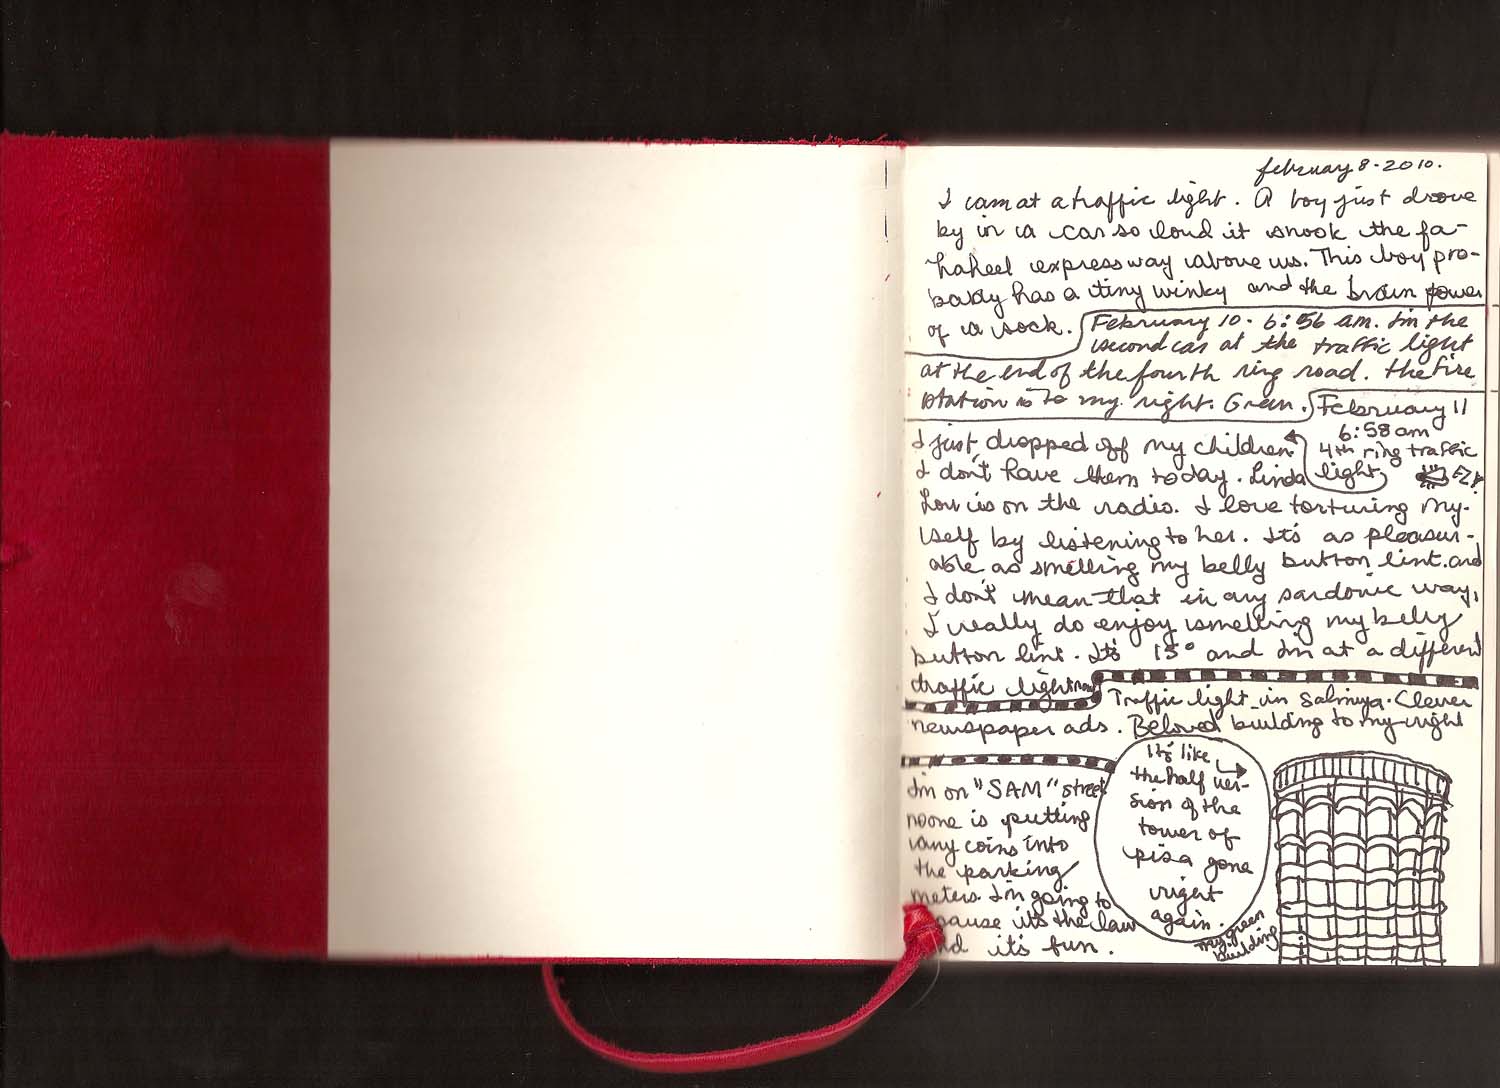 february 8-2010.
I am at a traffic light. A boy just drove
by in a car so loud it shook the fa-
haheel expressway above us. This boy pro-
babdy has a tiny winky and the brain power
of a sock.
February 10- 6:56 am. I'm in the
second car at the traffic light
at the end of the fourth ring road. the fire
station is to my right. Green.
February 11
6:58 am
4th ring traffic
light
I just dropped off my children.
I don't have them today. Linda
Lou is on the radio. I love torturing my-
self by listening to her. It's as pleasur-
able as smelling my belly button lint. and
I don't mean that in any sardonic way,
I really do enjoy smelling my belly
button lint. It's 15° and I'm at a different
traffic light now
Traffic light in Salmiya. Clever
newspaper ads. Beloved building to my right
It's like
the half ver-
sion of the
tower of
pisa gone
right
again.
my green
building
I'm on "SAM" street
noone is putting
any coins into
the parking
meters. I'm going to
cause it's the law
and it's fun.